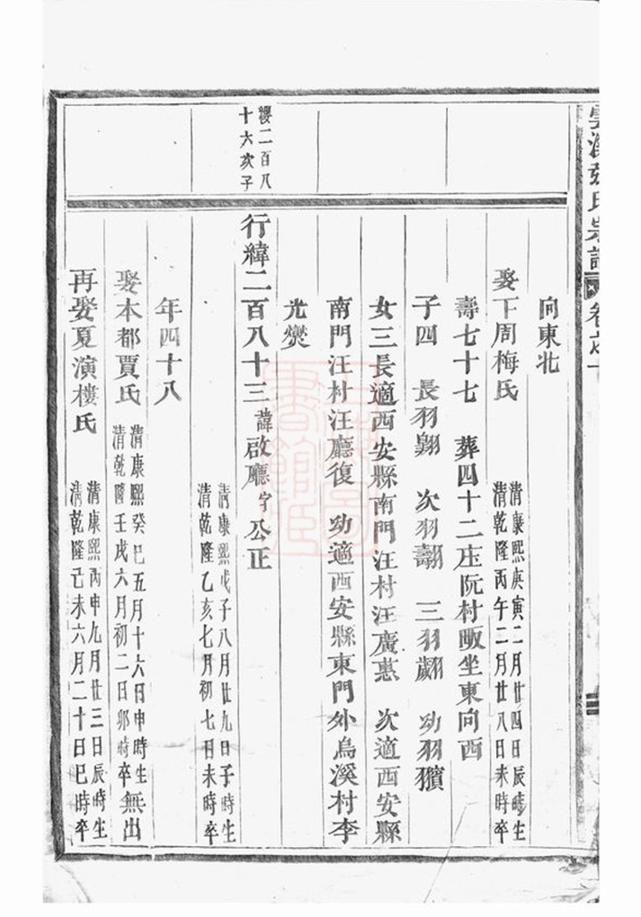 氏宗譜 卷之
向東北
娶下周梅氏 清康熙庚寅二月廿四日辰時生
清乾隆丙午二月廿八日未時卒
壽七十七 葬四十二庄阮村畈坐東向西
子四 長羽翺 次羽翿 三羽翽 幼羽獷
女三長適西安縣南門汪村汪廣惠 次適西安縣
南門汪村汪廳復 幼適西安縣東門外烏溪村李
光燮
纓二百八
十六次子
行緯二百八十三 諱啟廳 字公正
清康熙戊子八月廿九日子時生
清乾隆乙亥七月初七日未時卒
年四十八
娶本都賈氏 清康熙癸巳五月十六日申時生
清乾隆壬戌六月初二日卯時卒 無出
再娶夏演樓氏 清康熙丙申九月廿三日辰時生
清乾隆己未六月二十日巳時卒